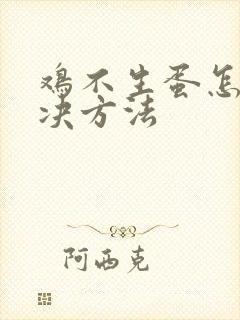 鸡不生蛋怎
决方法
阿西克